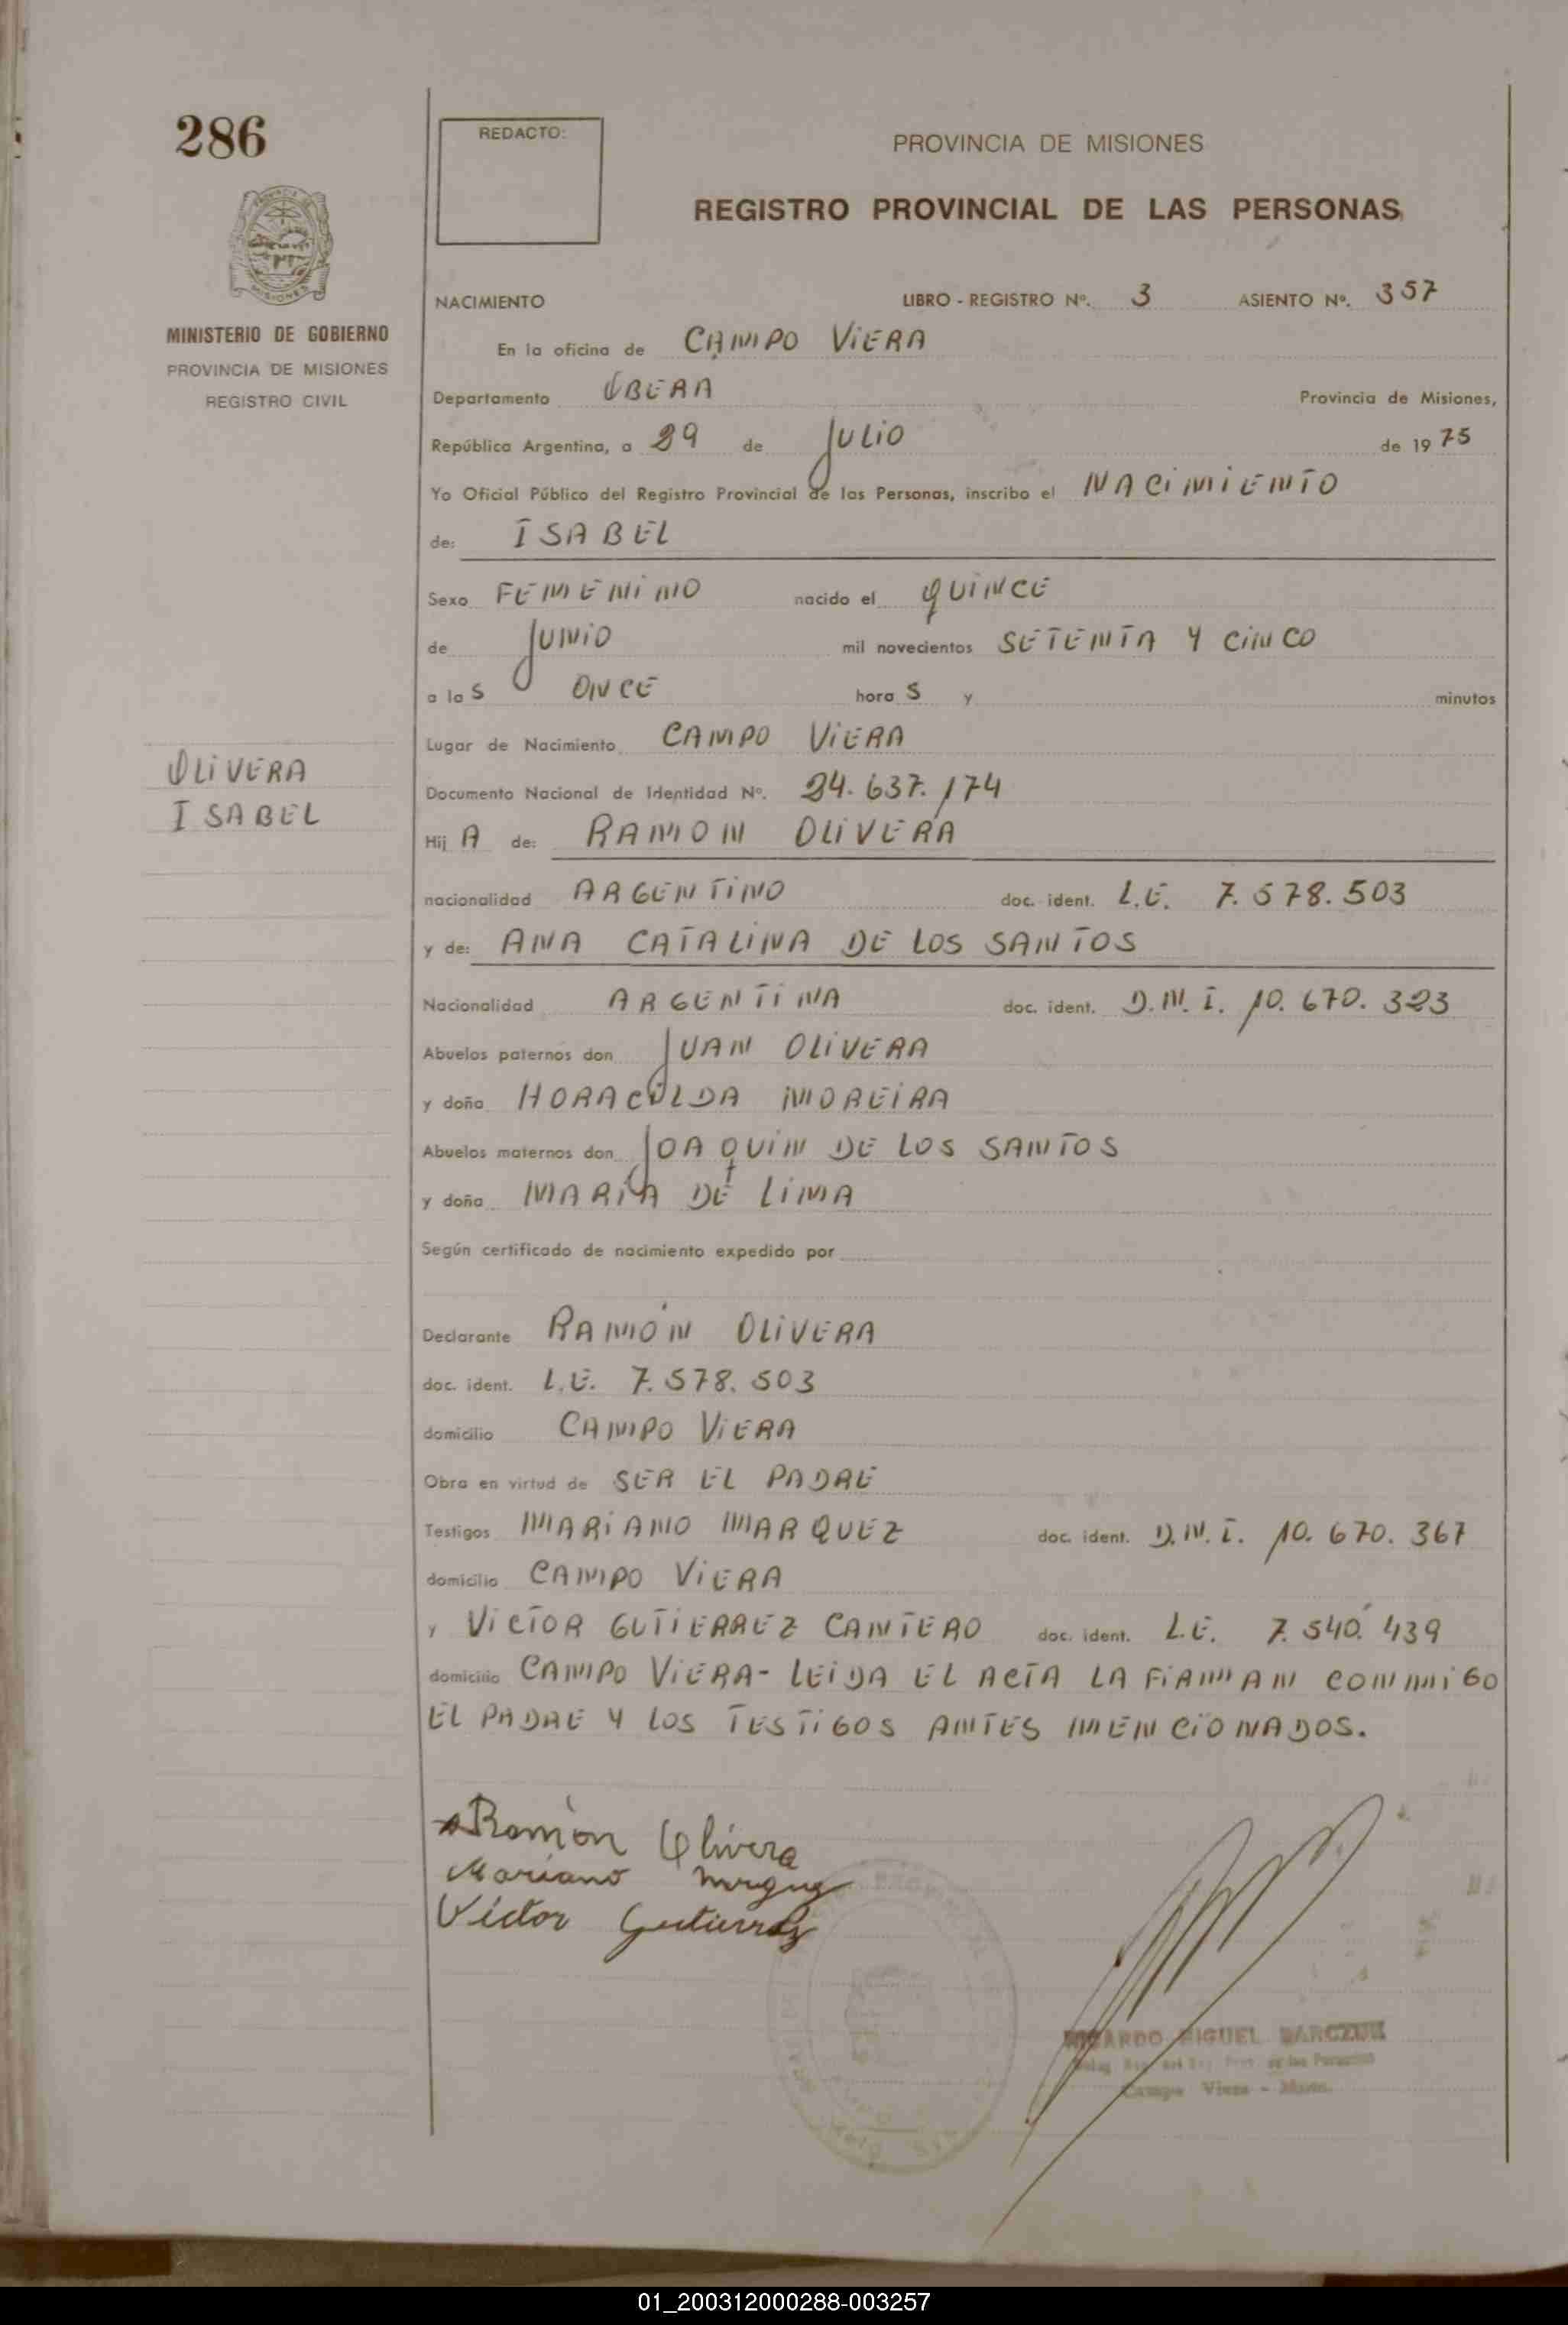 286
REDACTO:
PROVINCIA DE MISIONES
REGISTRO PROVINCIAL DE LAS PERSONAS
MINISTERIO DE GOBIERNO
PROVINCIA DE MISIONES
REGISTRO CIVIL
NACIMIENTO LIBRO - REGISTRO Nº. 3 ASIENTO Nº. 357
En la oficina de CAMPO VIERA
Departamento OBERA Provincia de Misiones,
República Argentina, a 29 de JULIO de 1975
Yo Oficial Público del Registro Provincial de las Personas, inscribo el NACIMIENTO
de: ISABEL
Sexo FEMENINO nacido el QUINCE
de JUNIO mil novecientos SETENTA Y CINCO
a las ONCE horas y minutos
Lugar de Nacimiento CAMPO VIERA
OLIVERA
ISABEL
Documento Nacional de Identidad Nº. 24.637.174
Hij A de: RAMON OLIVERA
nacionalidad ARGENTINO doc. ident. L.E. 7.578.503
y de: ANA CATALINA DE LOS SANTOS
Nacionalidad ARGENTINA doc. ident. D.N.I. 10.670.323
Abuelos paternos don JUAN OLIVERA
y doña HORACILDA MOREIRA
Abuelos maternos don JOAQUIN DE LOS SANTOS
y doña MARIA DE LIMA
Según certificado de nacimiento expedido por
Declarante RAMÓN OLIVERA
doc. ident. L.E. 7.578.503
domicilio CAMPO VIERA
Obra en virtud de SER EL PADRE
Testigos MARIANO MARQUEZ doc. ident. D.N.I. 10.670.367
domicilio CAMPO VIERA
y VICTOR GUTIERREZ CANTERO doc. ident. L.E. 7.540.439
domicilio CAMPO VIERA- LEIDA EL ACTA LA FIRMAN CONMIGO
EL PADRE Y LOS TESTIGOS ANTES MENCIONADOS.
Ramón Olivera
Mariano
Victor Gutierrez
MIGUEL
Campo Viera -
01_200312000288-003257